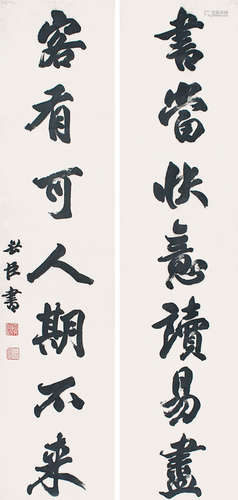 書當快意讀易盡
客有可人期不来
世臣書